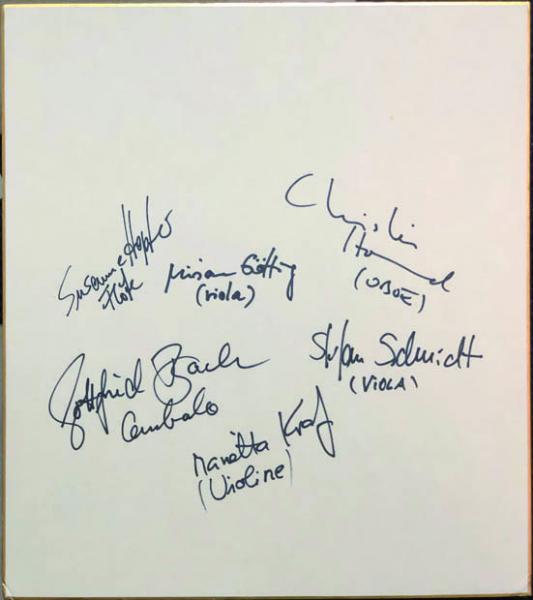 Christian
Hommel
(OBOE)
Susanne Hopfer
Flöte
Miriam Götting
(viola)
Stefan Schmidt
(VIOLA)
Gottfried Bach
Cembalo
Marietta Kratz
(Violine)